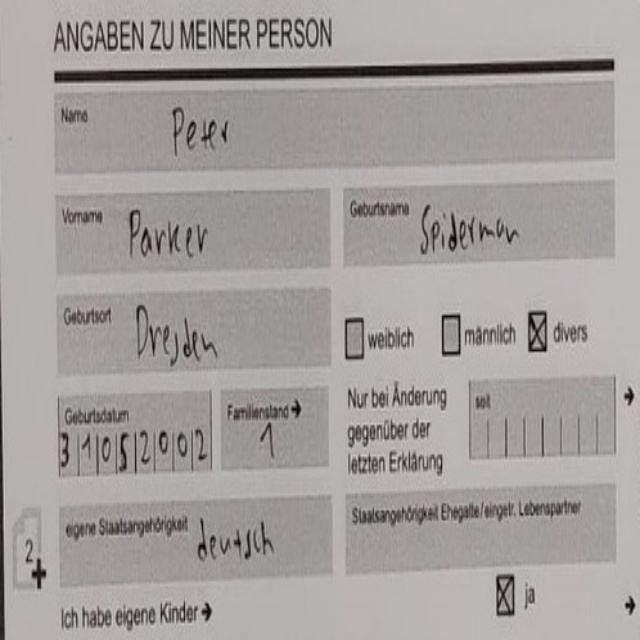 ANGABEN ZU MEINER PERSON
Name Peter
Vorname Parker
Geburtsname Spiderman
Geburtsort Dresden
weiblich männlich divers
Geburtsdatum 31052002
Familienstand → 1
Nur bei Änderung
gegenüber der
letzten Erklärung
seit
→
eigene Staatsangehörigkeit deutsch
Staatsangehörigkeit Ehegatte/eingetr. Lebenspartner
2+
Ich habe eigene Kinder →
ja
→